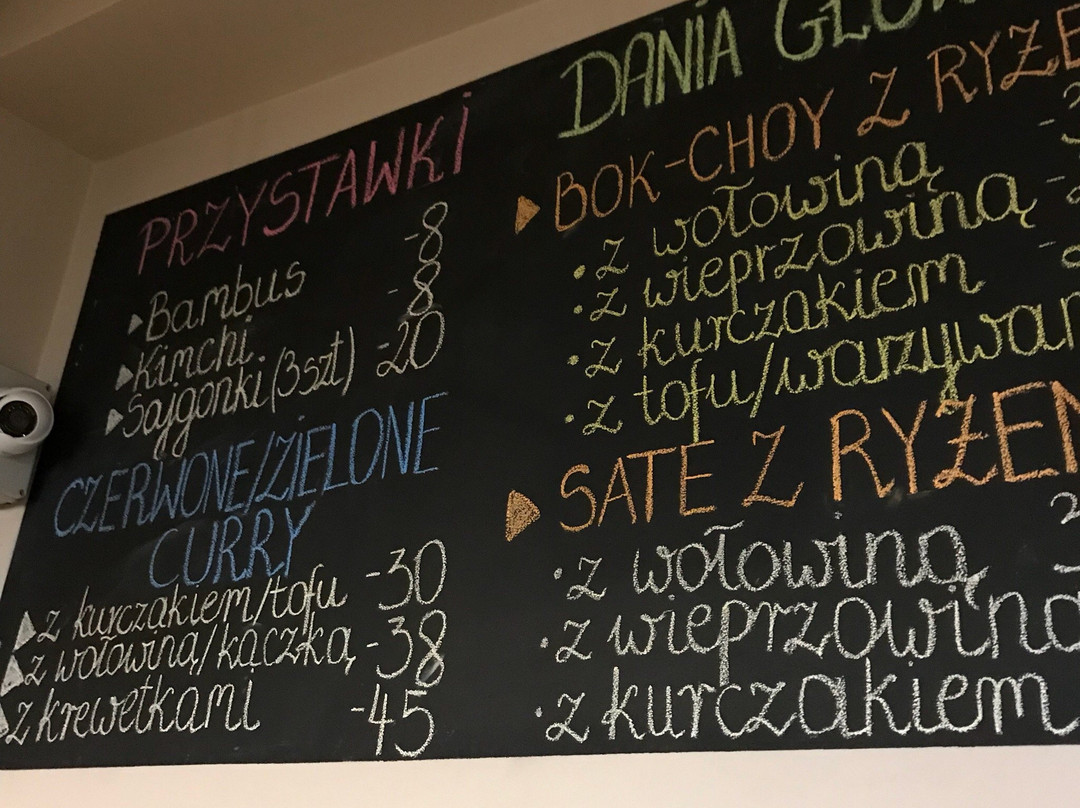 PRZYSTAWKI
Bambus -8
Kimchi -8
Sajgonki (3szt) -20
CZERWONE/ZIELONE
CURRY
z kurczakiem/tofu -30
z wołowiną/kaczką -38
z krewetkami -45
DANIA
BOK-CHOY Z
z wołowiną
z wieprzowiną
z kurczakiem
z tofu/
SATE Z
z wołowiną
z
z kurczakiem